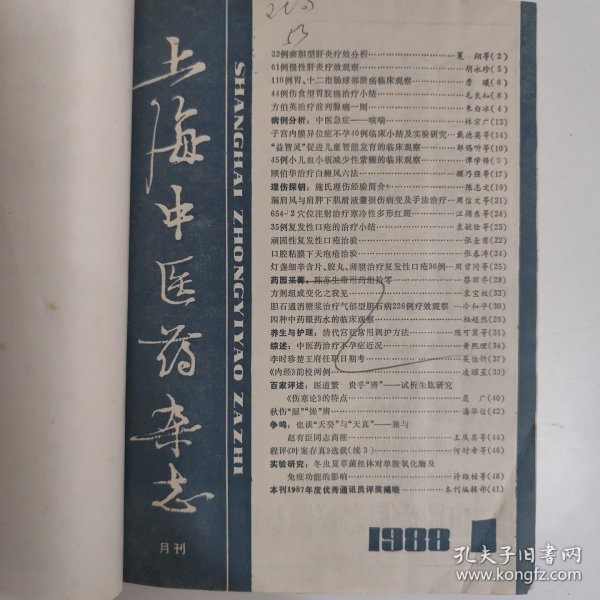 上海中医药杂志
SHANGHAI ZHONGYIYAO ZAZHI
月刊
33例瘀胆型肝炎疗效分析 夏翔等(2)
61例慢性肝炎疗效观察 胡永珍(5)
110例胃、十二指肠球部溃疡临床观察 詹 (6)
44例伤食型胃脘痛治疗小结 毛良知(8)
方伯英治疗前列腺癌一则 朱白冰(4)
病例分析：中医急症——咳喘 林宗广(13)
子宫内膜异位症不孕40例临床小结及实验研究 戴德英等(14)
“益智灵”促进儿童智能发育的临床观察 邹 等(16)
45例小儿血小板减少性紫癜的临床观察 谭学佳( )
顾伯华治疗白癜风六法 顾乃强等(17)
理伤探钥：施氏理伤经验简介 陈志文(19)
漏肩风与肩胛下肌滑液囊损伤病变及手法治疗 周信文等(21)
654-2穴位注射治疗寒冷性多形红斑 江德永等(24)
35例复发性口疮的治疗小结 袁 等(23)
顽固性复发性口疮治验 张 (22)
口腔粘膜下天疱疮治验 张春涛(24)
灯盏细辛含片、胶丸、薄膜治疗复发性口疮36例 周曾同等(25)
药园采菁：陈苏生常用药组拾零 蔡丽乔(28)
方剂组成变化之我见 袁宝权(32)
胆石通消糖浆治疗气郁型胆石病226例疗效观察 冷和平(30)
四种中药眼药水的临床观察 柏超然(25)
养生与护理：清代宫廷常用调护方法 陈可冀等(29)
综述：中医药治疗不孕症近况 黄熙理(34)
李时珍楚王府任职日期考 吴佐忻(37)
《内经》韵校两例 凌耀星(33)
百家评述：医道繁 贵乎“辨”——试析朱肱研究
《伤寒论》的特点 聂广(40)
秋伤“湿”“燥”辨 潘华信(42)
争鸣：也谈“天癸”与“天真”——兼与
赵有臣同志商榷 王庆其等(44)
程评《叶案存真》选载(续3) 何时希等(46)
实验研究：冬虫夏草菌丝体对单胺氧化酶及
免疫功能的影响 许 等(48)
本刊1987年度优秀通讯员评奖揭晓 本刊编辑部(41)
1988 1
孔夫子旧书网
kongfz.com